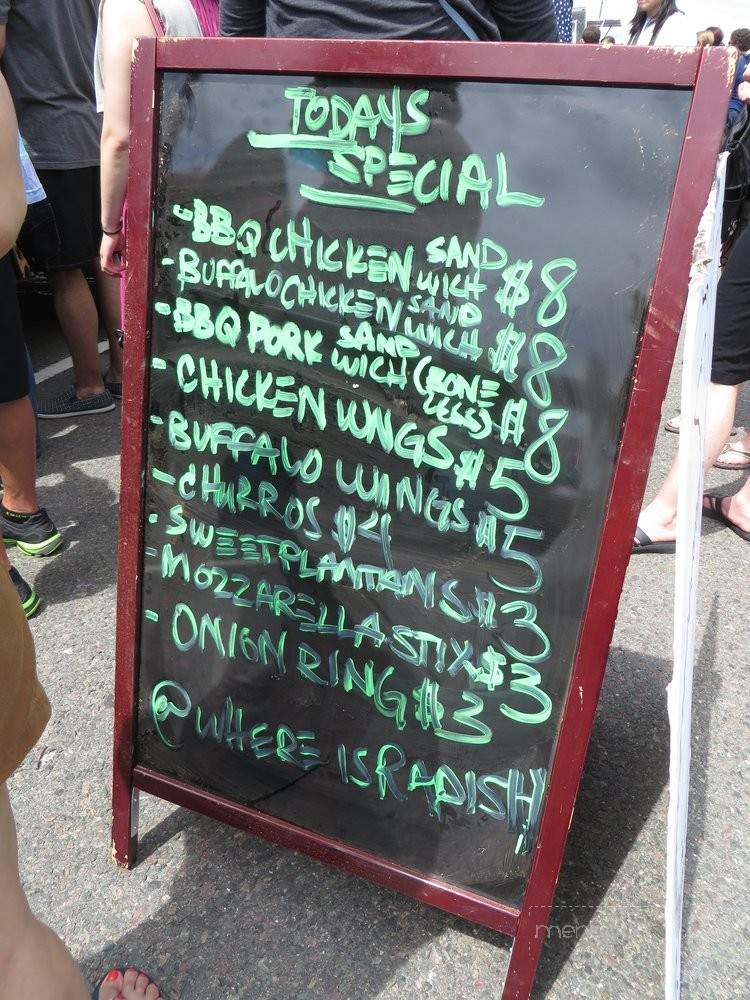 TODAYS
SPECIAL
-BBQ CHICKEN SAND WICH $8
-BUFFALO CHICKEN SAND WICH $8
-BBQ PORK SAND WICH (BONE LESS) $8
-CHICKEN WINGS $5
-BUFFALO WINGS $5
-CHURROS $4
-SWEET PLANTAINS $3
-MOZZARELLA STIX $3
-ONION RING $3
@WHERE IS RADISH